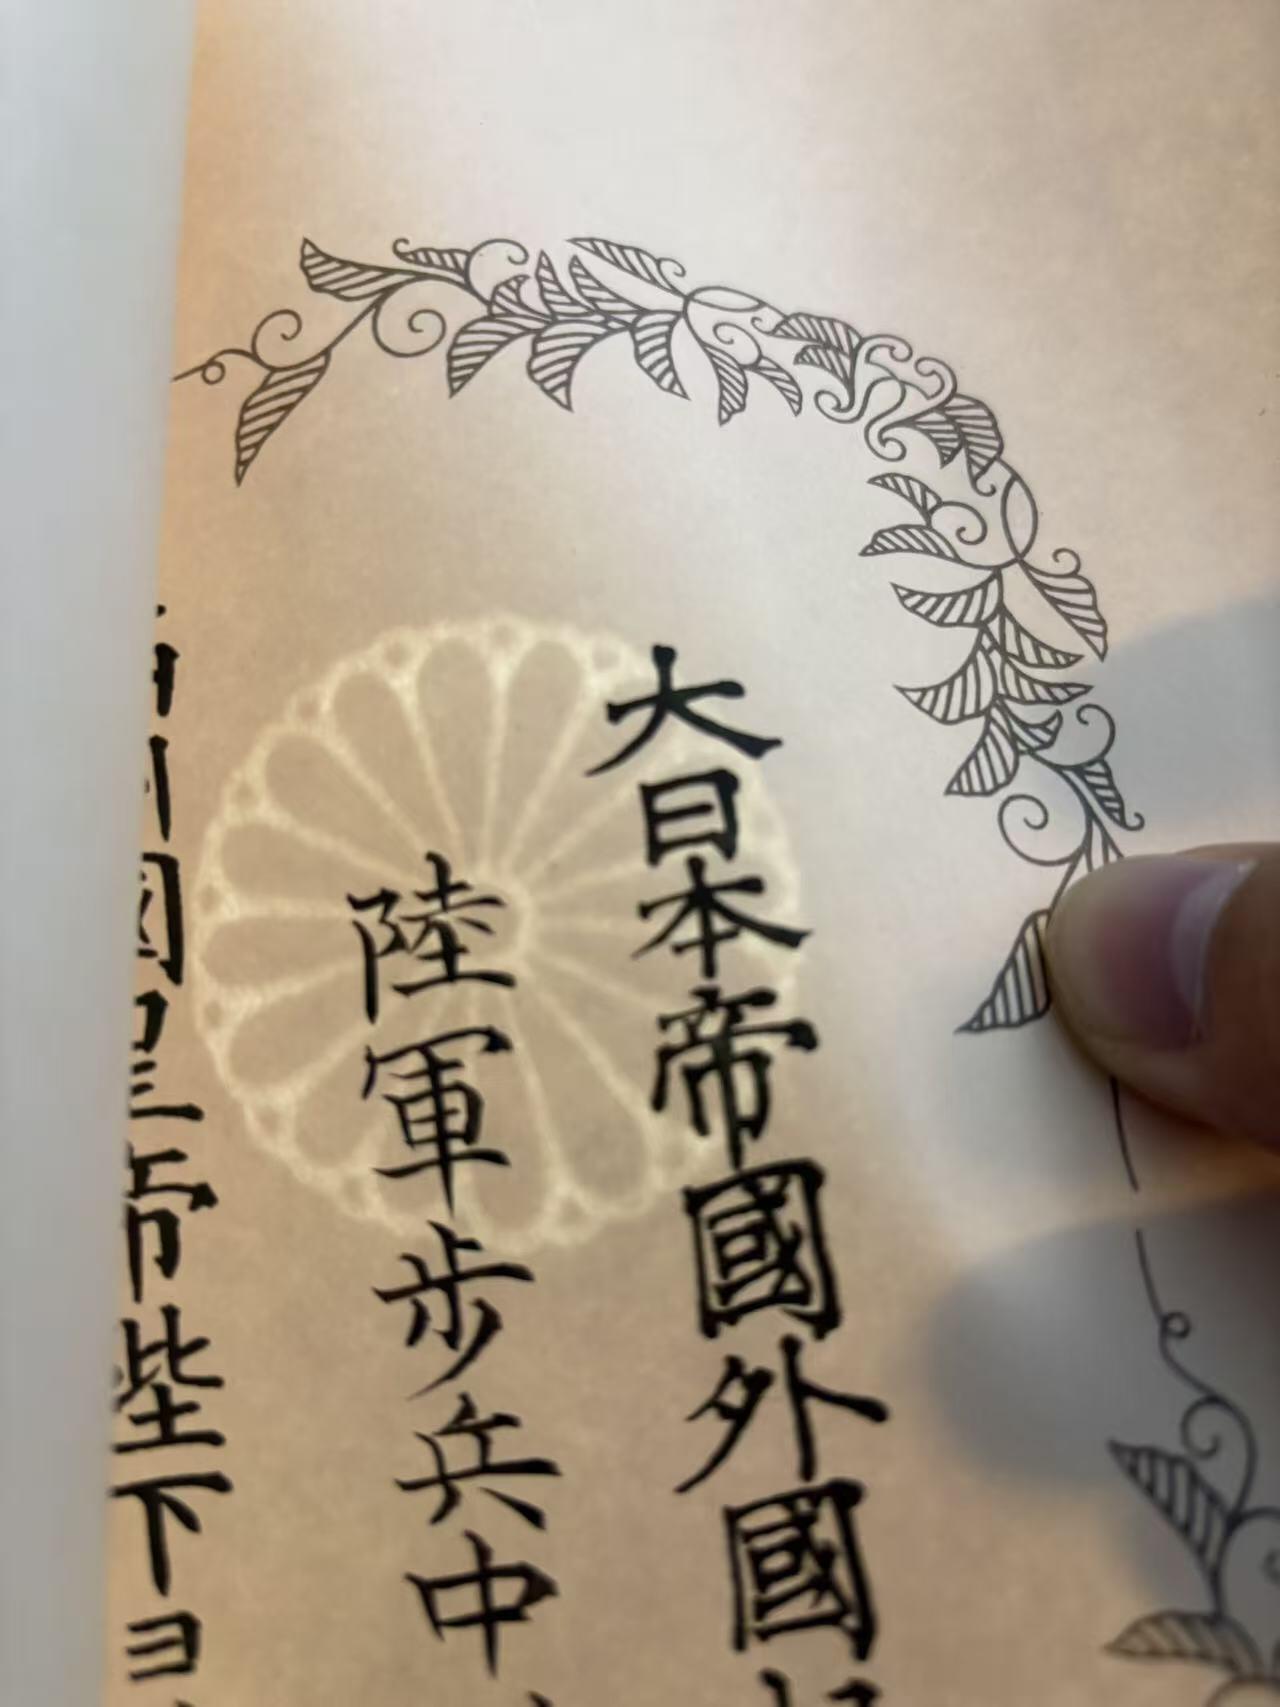 大日本帝國外國
陸軍歩兵中
國皇帝陛下ヨ